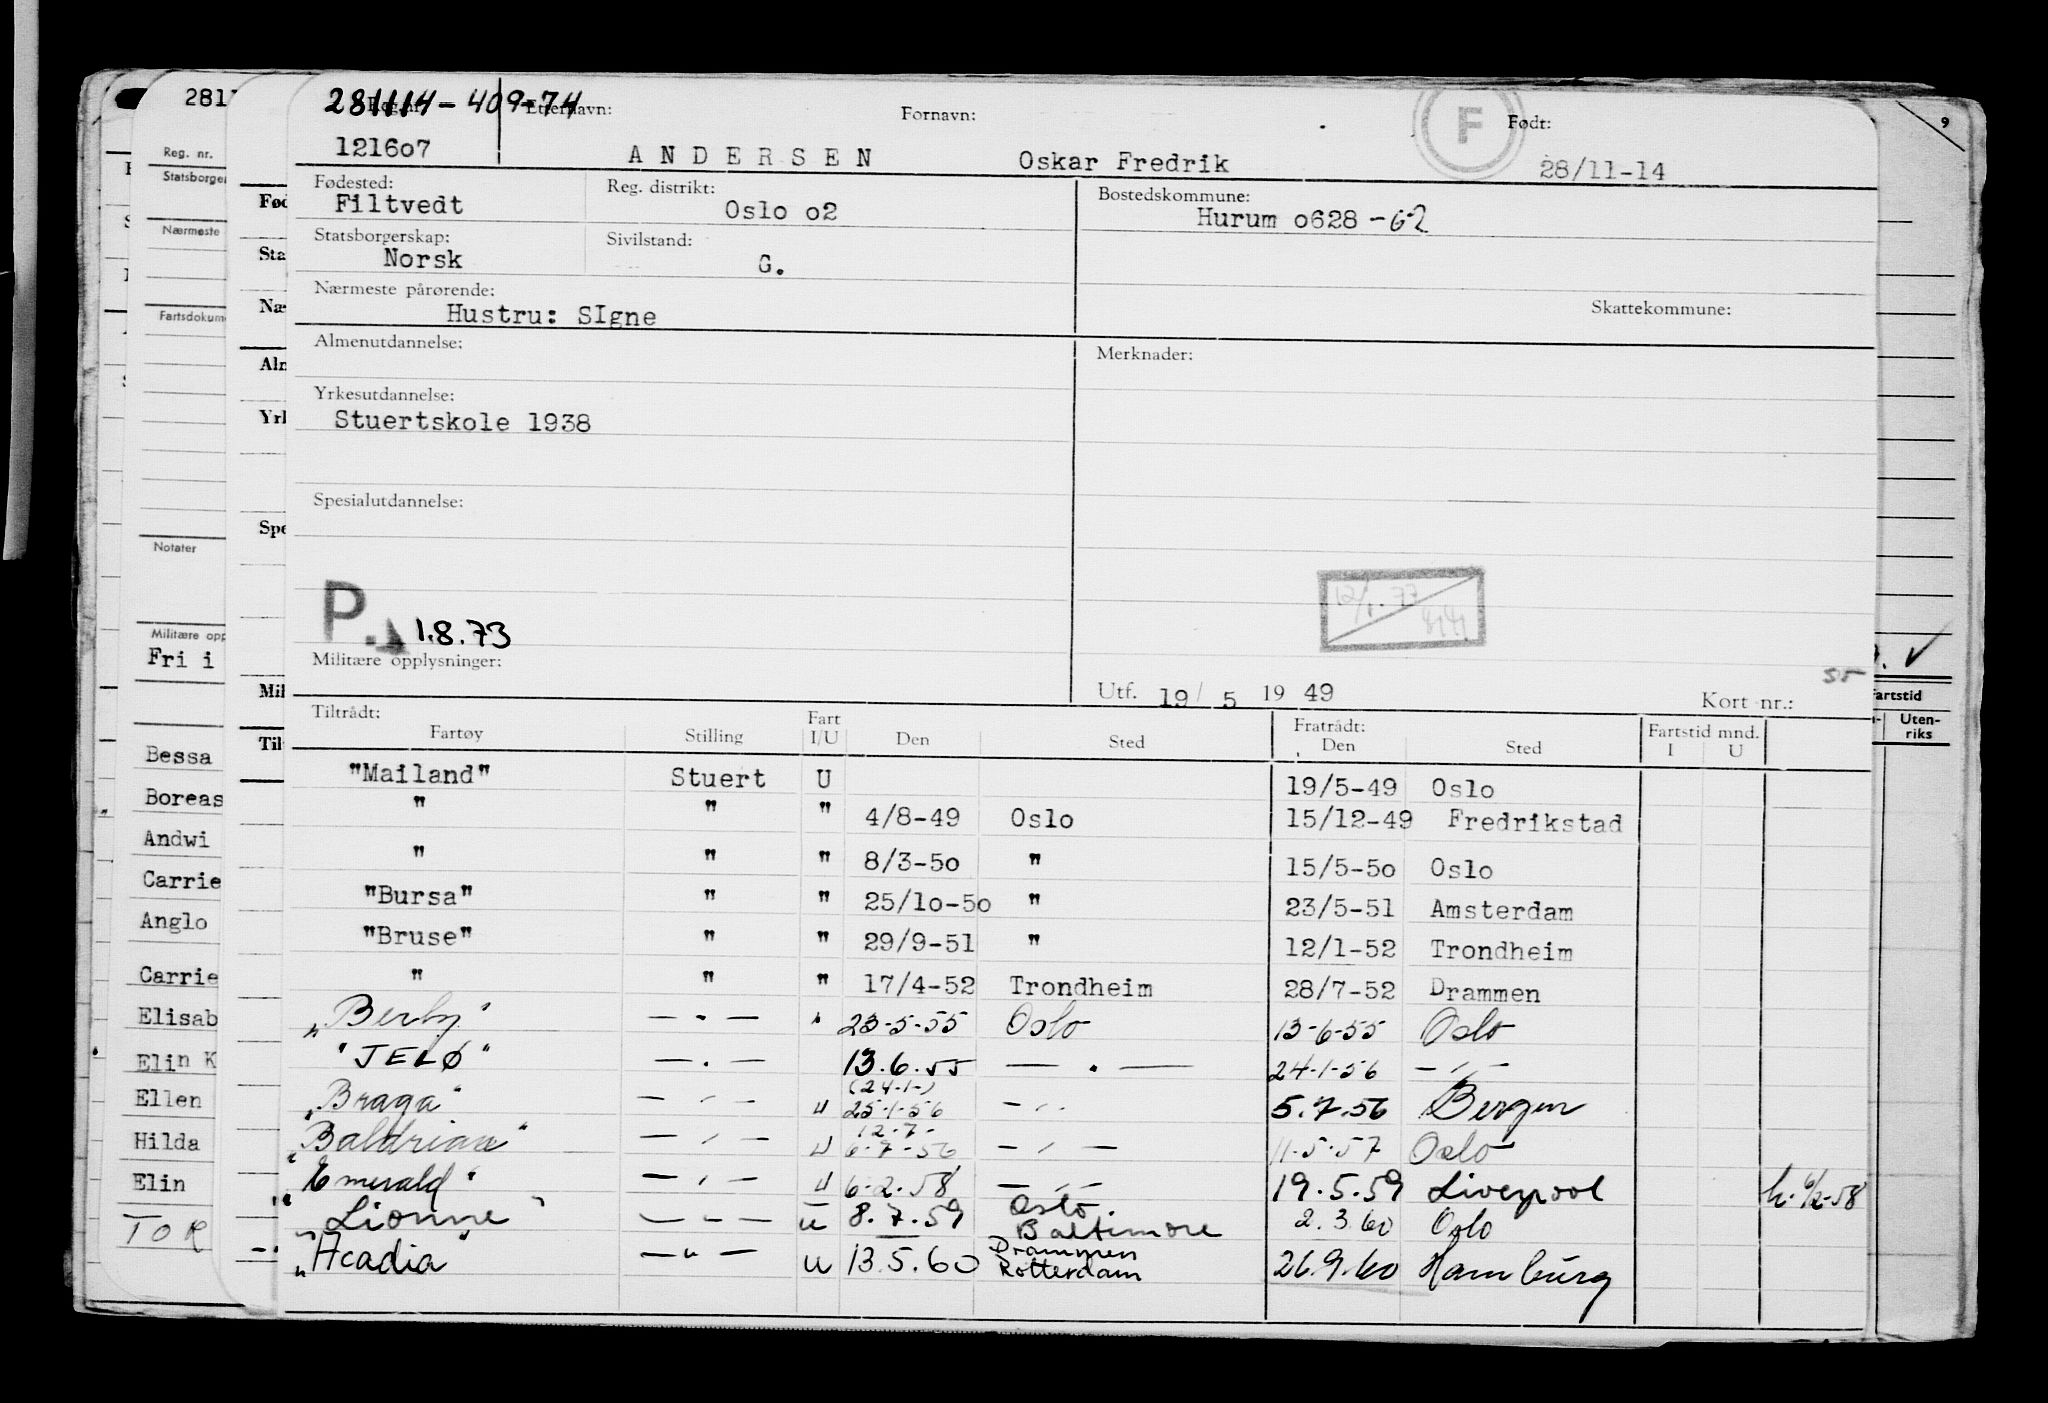 281114-409-74
Reg. nr. Etternavn: Fornavn: Født:
121607 ANDERSEN Oskar Fredrik 28/11-14
F
Fødested: Reg. distrikt: Bostedskommune:
Filtvedt Oslo o2 Hurum o628 -62
Statsborgerskap: Sivilstand:
Norsk G.
Nærmeste pårørende: Skattekommune:
Hustru: SIgne
Almenutdannelse: Merknader:
Yrkesutdannelse:
Stuertskole 1938
Spesialutdannelse:
P. 1.8.73
12/1.77
Militære opplysninger:
Utf. 19/5 1949 Kort nr.:
Tiltrådt: Fratrådt: Fartstid mnd.
Fartøy Stilling Fart I/U Den Sted Den Sted I U
"Mailand" Stuert U 19/5-49 Oslo
" " " 4/8-49 Oslo 15/12-49 Fredrikstad
" " " 8/3-5o " 15/5-5o Oslo
"Bursa" " " 25/1o-5o " 23/5-51 Amsterdam
"Bruse" " " 29/9-51 " 12/1-52 Trondheim
" " " 17/4-52 Trondheim 28/7-52 Drammen
"Berby" — " — " 23-5-55 Oslo 13-6-55 Oslo
"JELØ" — " — 13.6.55 — " — 24-1-56 — " —
(24-1-)
"Braga" — " — U 25-1-56 — " — 5.7.56 Bergen
12-7-
"Baldrian" — " — U 6-7-56 — " — 11-5-57 Oslo
"Emerald" — " — U 6-2-58 — " — 19.5.59 Liverpool
"Lionne" — " — U 8.7.59 Oslo Baltimore 2.3.60 Oslo
"Acadia" — " — U 13.5.60 Drammen Rotterdam 26.9.60 Hamburg
2811
Reg. nr.
Statsborger
Nærmeste
Fartsdokum
Notater
Militære opp
Fri i
Bessa
Boreas
Andwi
Carrie
Anglo
Carrie
Elisab
Elin K
Ellen
Hilda
Elin
TOR
Fød
Sta
Næ
Aln
Yrk
Spe
Mil
Til
9
Fartstid
Uten-
riks